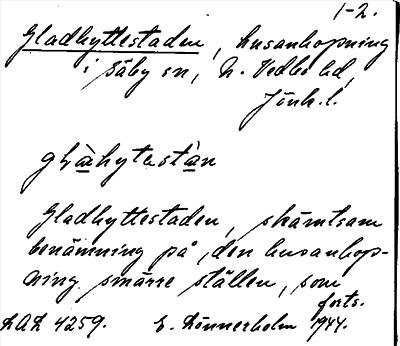 1-2.
Gladhyttestaden, husanhopning
i Säby sn, N. Vedbo hd,
Jönk.l.
glàhytestàn
Gladhyttestaden, skämtsam
benämning på den husanhop-
ning smärre ställen, som
forts.
LAL 4259. E. Lönnerholm 1944.